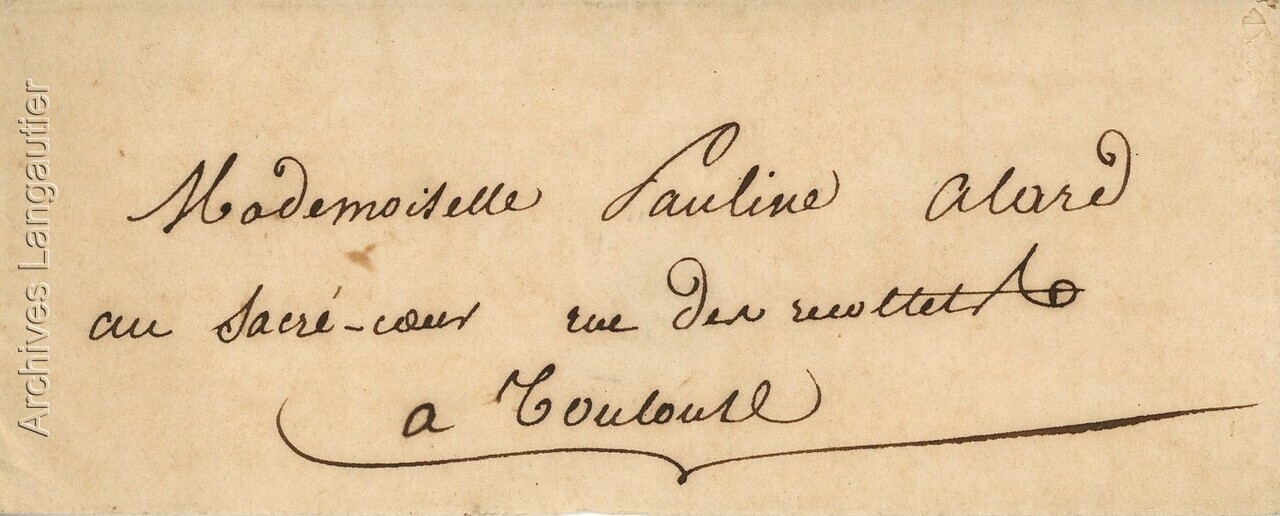 Mademoiselle Pauline Alard
au Sacré-coeur rue des recollets
a Toulouse
Archives Langautier